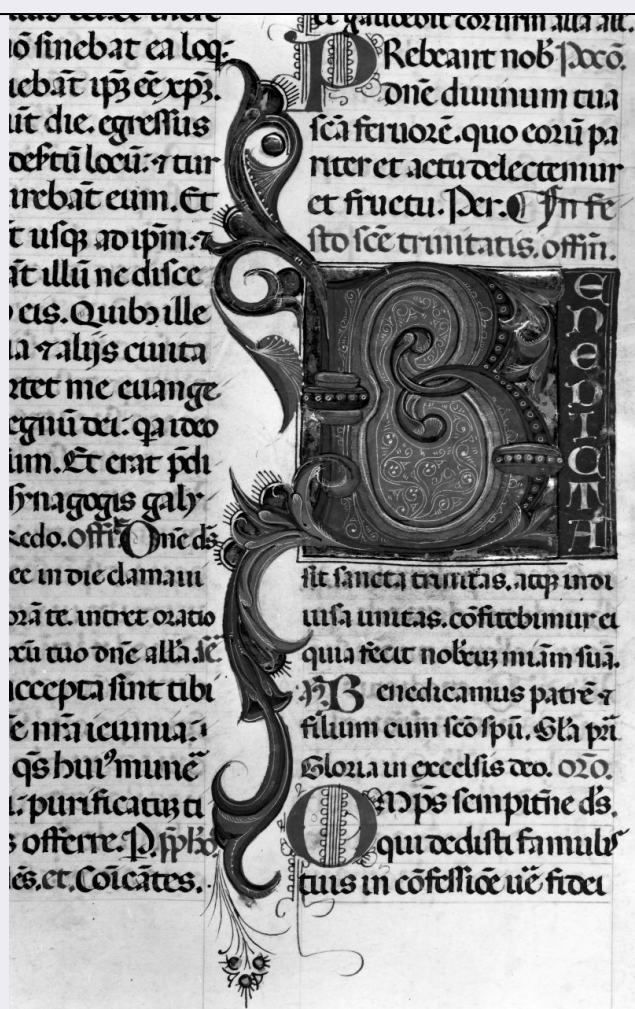 nō sinebat ea loq
uebāt ipꝫ eē xpꝫ.
ut die. egressus
desertū locū: ⁊ tur
irebāt eum. Et
t usqꝫ ad ipm: ⁊
āt illū ne disce
eis. Quibꝫ ille
ia ⁊ alijs ciuita
rtet me euange
egnū dei: qa ideo
um. Et erat p̄di
synagogis galy
redo. offr̄ Dn̄e ds̄
ee in die clamaui
orā te. intret oratio
cū tuo dn̄e all'a. se
accepta sint tibi
e nr̄a ieiunia:
qs̄ hui' munē
purificatꝫ ti
s offerre. P.
ēs. et. Cōicātes.
et gaudebit cor urm̄ alla all'.
PRebeant nob' Pocō.
dn̄e diuinum tua
scā feruorē. quo eorū pa
riter et actu delectemur
et fructu. Per. In fe
sto scē trinitatis. offm̄.
BENEDICTA
sit sancta trinitas. atqꝫ indi
uisa unitas. cōfitebimur ei
quia fecit nobcuꝫ miām suā.
Benedicamus patrē ⁊
filium cum scō spū. Gl'a pri
Gloria in excelsis deo. orō.
OMps sempitn̄e ds̄.
qui dedisti famulis
tuis in cōfessiōe ūe fidei